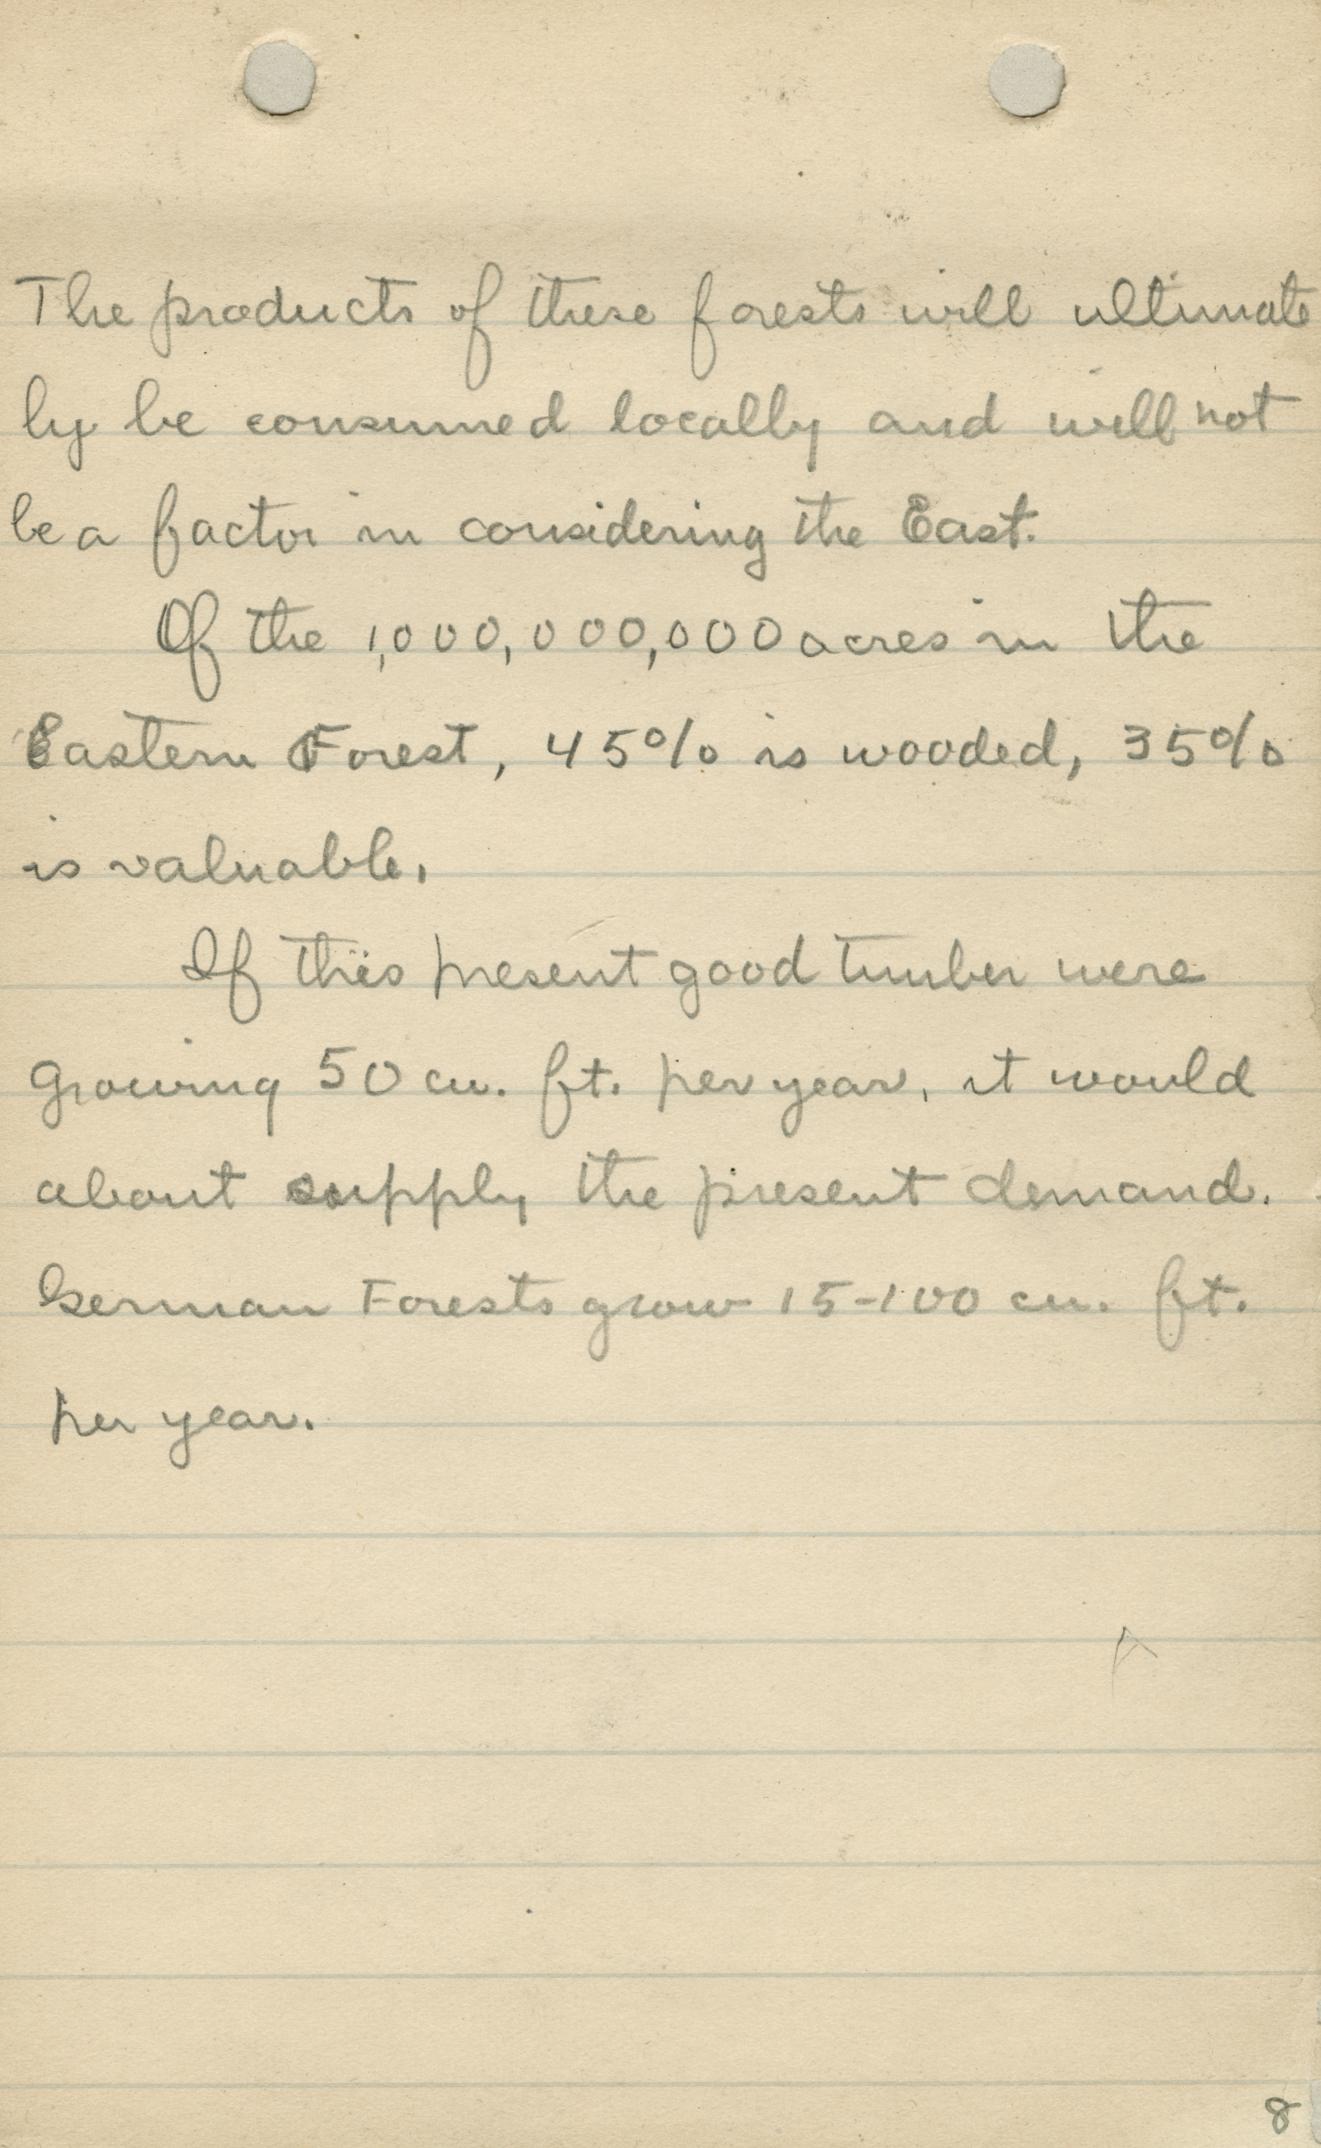 The products of these forests will ultimate
ly be consumed locally and will not
be a factor in considering the East.
Of the 1,000,000,000 acres in the
Eastern Forest, 45% is wooded, 35%
is valuable.
If this present good timber were
growing 50 cu. ft. per year, it would
about supply the present demand.
German Forests grow 15-100 cu. ft.
per year.
8